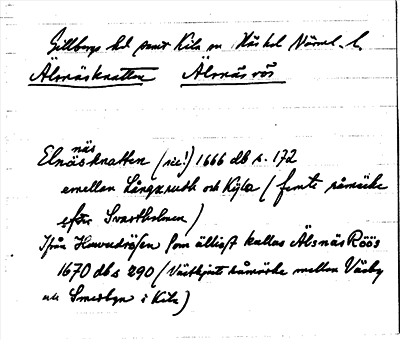 Gillbergs hd samt Kila sn Näs hd Värml. l.
Älsnäsknatten Älsnäsrös
näs
Elnäsknatten (sic!) 1666 db s. 172
emellan Långzruth och Kijla (femte råmärke
efter Svartholmen)
Ifrån Huwudröſen ſom älliaſt kallas ÄlsnäsRöös
1670 db s 290 (Västligaste råmärke mellan Väsby
och Smedbyn i Kila)